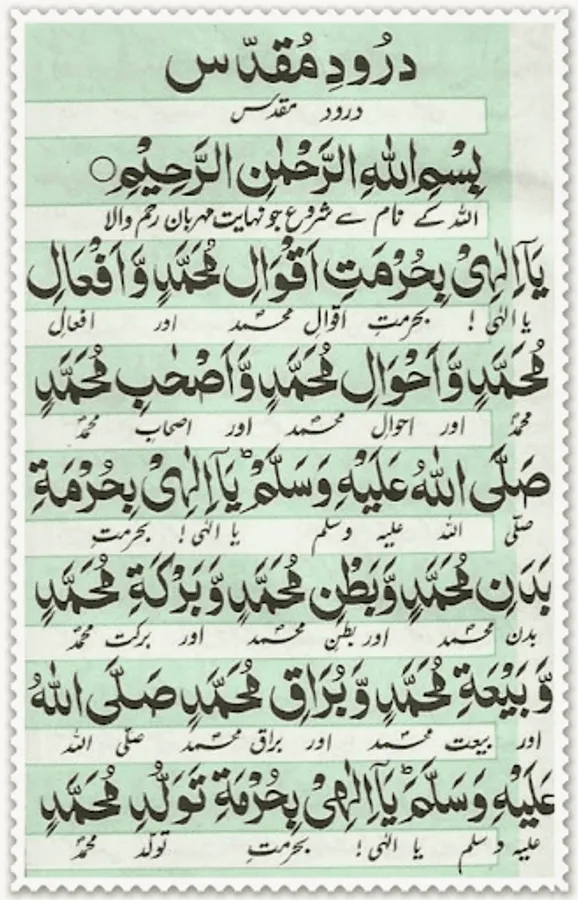 دُرُودِ مُقَدَّس
درود مقدس
بِسْمِ اللهِ الرَّحْمٰنِ الرَّحِيْمِ○
اللہ کے نام سے شروع جو نہایت مہربان رحم والا
يَآ اِلٰهِىْ بِحُرْمَتِ اَقْوَالِ مُحَمَّدٍ وَّاَفْعَالِ
یا الٰہی! بحرمتِ اقوالِ محمدؐ اور افعالِ
مُحَمَّدٍ وَّاَحْوَالِ مُحَمَّدٍ وَّاَصْحٰبِ مُحَمَّدٍ
محمدؐ اور احوالِ محمدؐ اور اصحابِ محمدؐ
صَلَّى اللهُ عَلَيْهِ وَسَلَّمَ ؕ يَآ اِلٰهِىْ بِحُرْمَةِ
صلّی اللہ علیہ وسلم یا الٰہی! بحرمتِ
بَدَنِ مُحَمَّدٍ وَّبَطْنِ مُحَمَّدٍ وَّبَرْكَةِ مُحَمَّدٍ
بدن محمدؐ اور بطنِ محمدؐ اور برکت محمدؐ
وَّبَيْعَةِ مُحَمَّدٍ وَّبُرَاقِ مُحَمَّدٍ صَلَّى اللهُ
اور بیعت محمدؐ اور براق محمدؐ صلّی اللہ
عَلَيْهِ وَسَلَّمَ ؕ يَآ اِلٰهِىْ بِحُرْمَةِ تَوَلُّدِ مُحَمَّدٍ
علیہ وسلم یا الٰہی! بحرمتِ تولّد محمدؐ